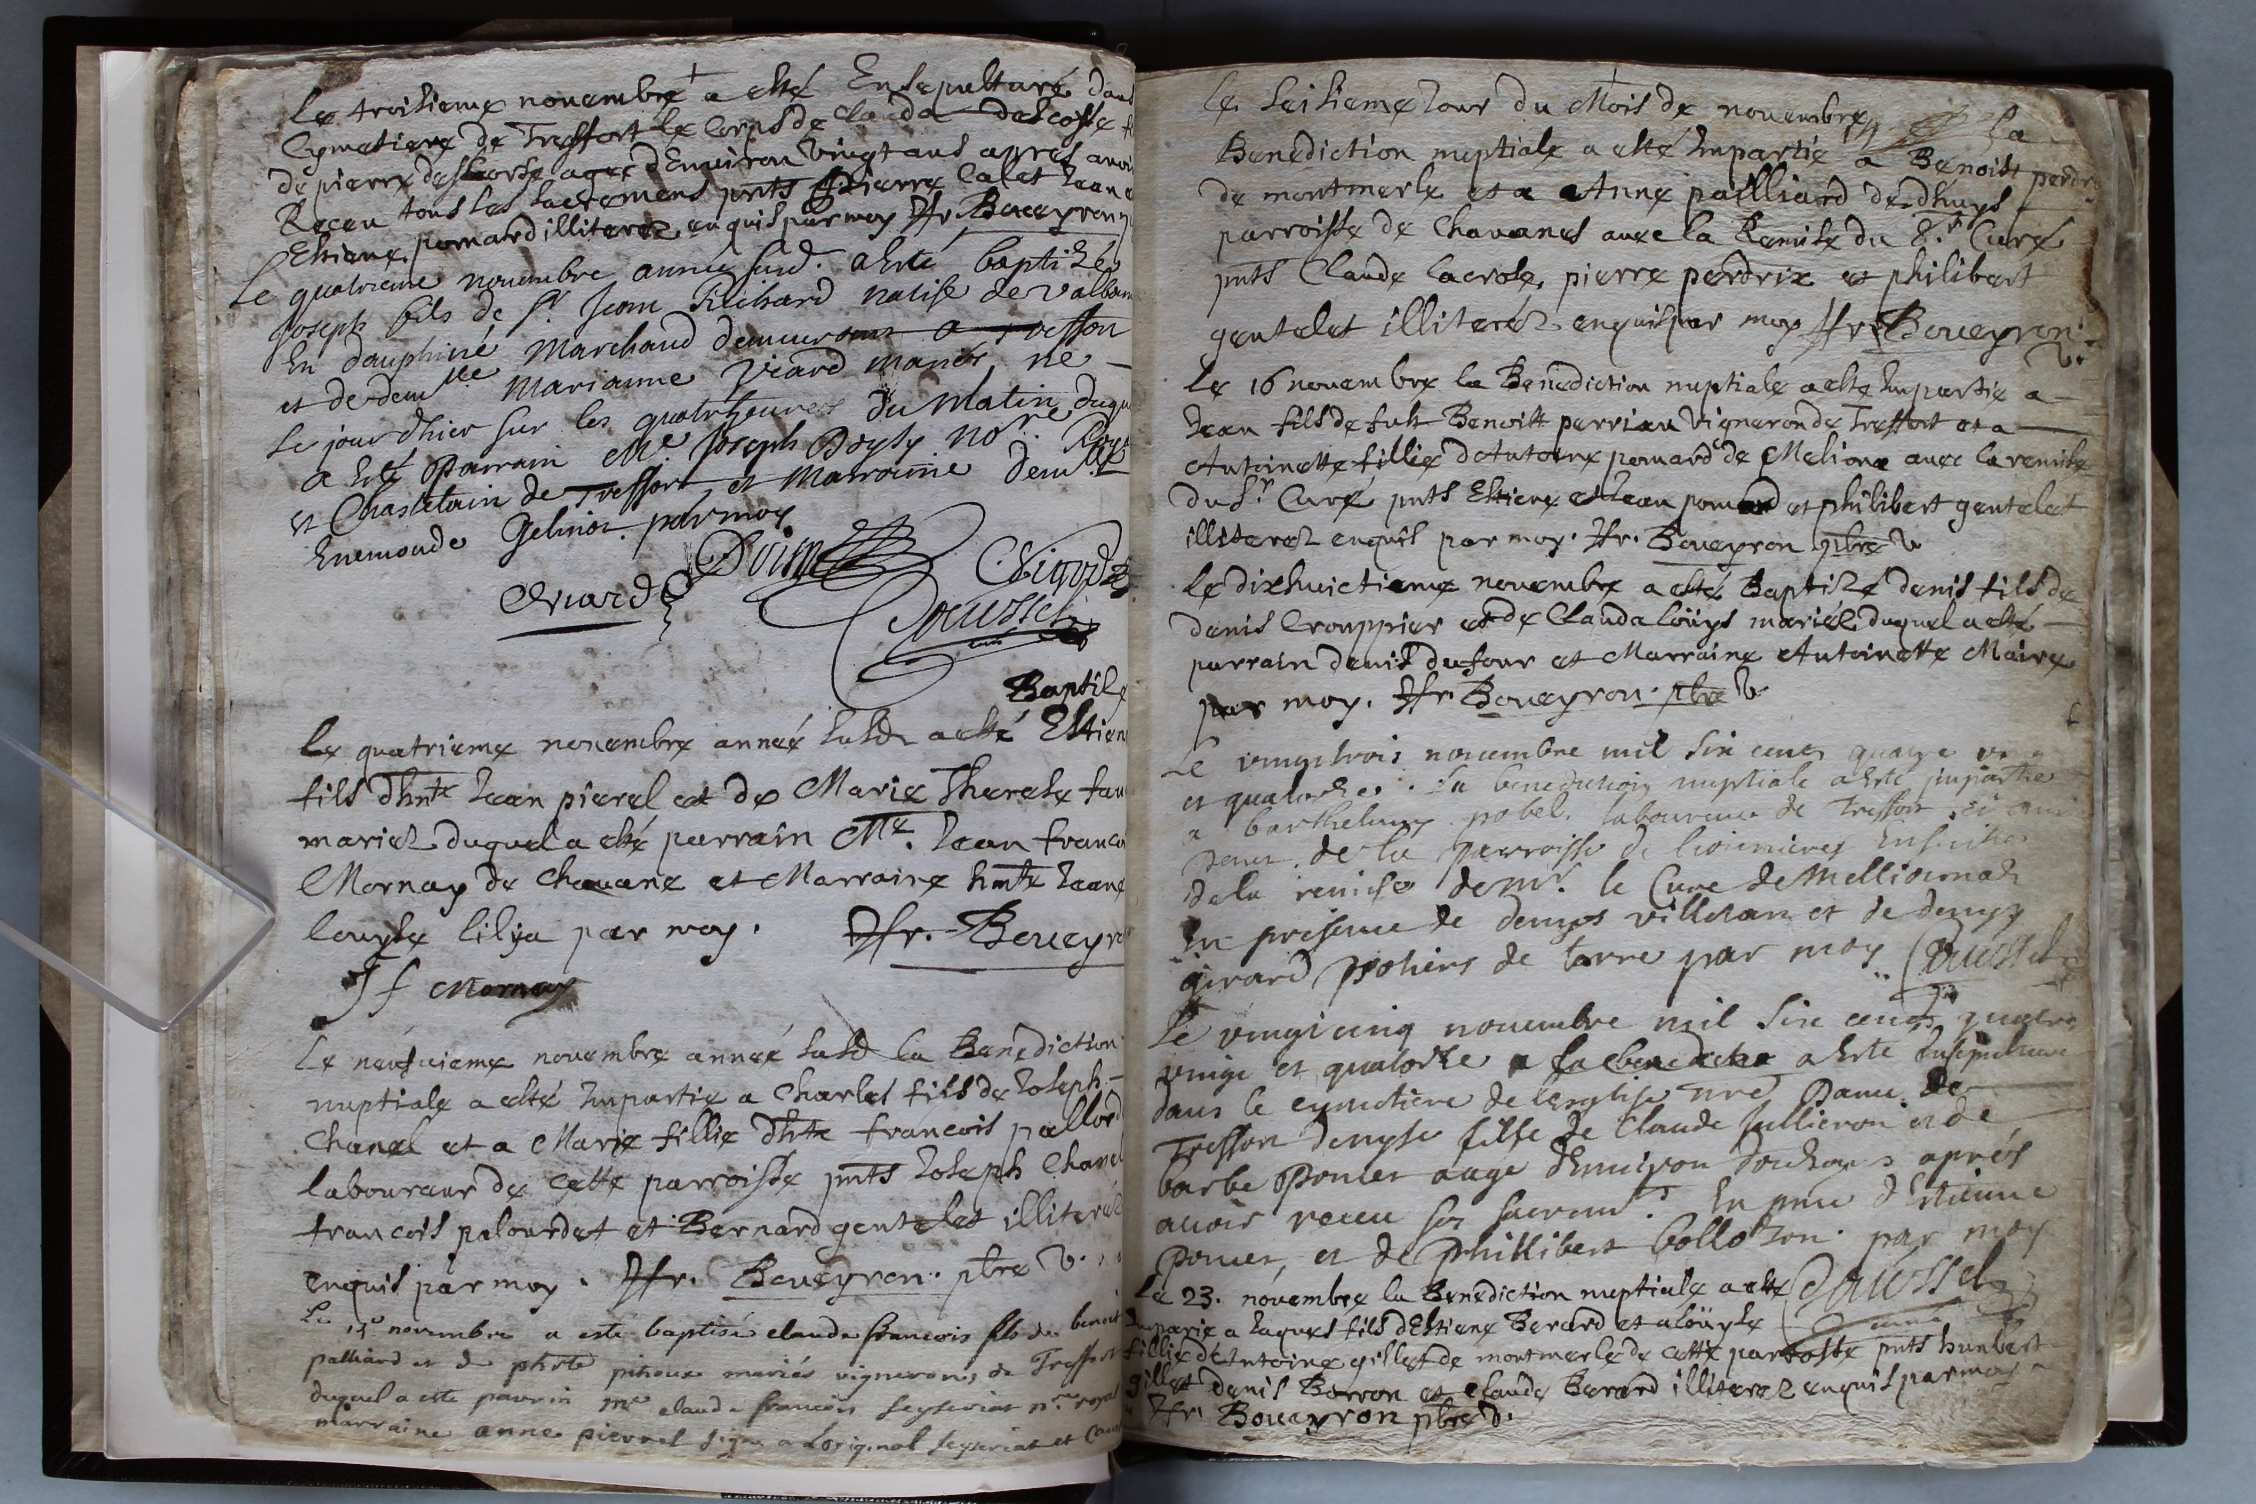 Le troisieme novembre a esté Ensepulturé dans
Cymetiere de Treffort le Corps de Clauda descosse
de pierre descosse agee d'Environ vingt ans apres avoir
Receu tous les sacremens pnts Pierre Calet Jean
Estiene pomard illiterez enquis par moy Ffr. Boueyron
Le quatrieme novembre année susd. a esté baptizé
Joseph fils de Sr Jean Richard natif de valbon
En dauphiné Marchand demeurant a Treffort
et de demlle Marianne Viard mariés, né
le jour d'hier sur les quatre heures du Matin duquel
a esté Parrain Me. Joseph Doyly Nore Royal
et Chastelain de Treffort et Marraine demlle
Enemonde Gelinot par moy
Viard
Roussel
Baptise
Le quatrieme novembre année susd a esté Estien
fils d'hnte Jean pierel et de Marie Therese
mariez duquel a esté parrain Me. Jean francois
Mornay de Chavane et Marraine hnte Jeane
louyse lilia par moy. Ffr. Boueyron
Jf Mornay
Le neufvieme novembre année susd la Benediction
nuptiale a esté Impartie a Charles fils de Joseph
Chanel et a Marie fillie d'hte francois pallord
laboureur de cette parroisse pnts Joseph Chanel
francois palourdet et Bernard gentelet illiterés
enquis par moy. Ffr. Boueyron. pbre v.
Le 15e novembre a esté baptisé claude francois fils de benoit
palliard et de phte pitioux mariés vignerons de Treffort
duquel a esté parrin me claude francois seyseriat nre royal
marraine anne pierrel signe a Loriginal seyseriat et
Le seisieme Jour du Mois de novembre la
Benediction nuptiale a esté Impartie a Benoist perdrix
de montmerle et a Anne pailliard de dhuys
parroisse de Chavanes avec la Remise du Sr. Curé
pnts Claude lacrose, pierre perdrix et philibert
gentelet illiterés enquis par moy Ffr. Boueyron.
Le 16 novembre la Benediction nuptiale a esté Impartie a
Jean fils de fut Benoist perrian vigneron de Treffort et a
Antoinette fillie d'Antoine pomard de Meliona avec la remise
du Sr. Curé pnts Estiene et Jean pomard et philibert gentelet
illiterez enquis par moy. Ffr. Boueyron pbre v
Le dixhuictieme novembre a esté Baptizé denis fils de
denis Crouppier et de Clauda loüys mariés duquel a esté
parrain denis dufour et Marraine Antoinette Maire
par moy. Ffr Boueyron. pbre v.
Le vingttrois novembre mil six cents quatre vingt
et quatorze. la benediction nuptiale a esté impartie
a Barthelemy pobel laboureur de Treffort et
de la parroisse de
de la remise de Mr. le Curé de Mellionnas
En presence de denys villetan et de denys
girard potiers de terre par moy Roussel
Le vingtcinq novembre mil six cents quatre
vingt et quatorze a la benedictio a esté Ensepulturé
dans le cymetiere de l'esglise nre Dame de
Treffort denyse fille de Claude Jullieron et de
barbe poncet aage d'Environ douze ans aprés
avoir receu ses sacremts. En pnce d'Estienne
poncet, et de Phillibert bollozon par moy
Roussel
Le 23. novembre la Benediction nuptiale a esté
Impartie a Jaques fils d'Estiene Berard et a loüyse
fillie d'Antoine gillet de montmerle de cette parroisse pnts humbert
gillet denis Borron et claude Berard illiterez enquis par moy
Ffr. Boueyron pbre v.